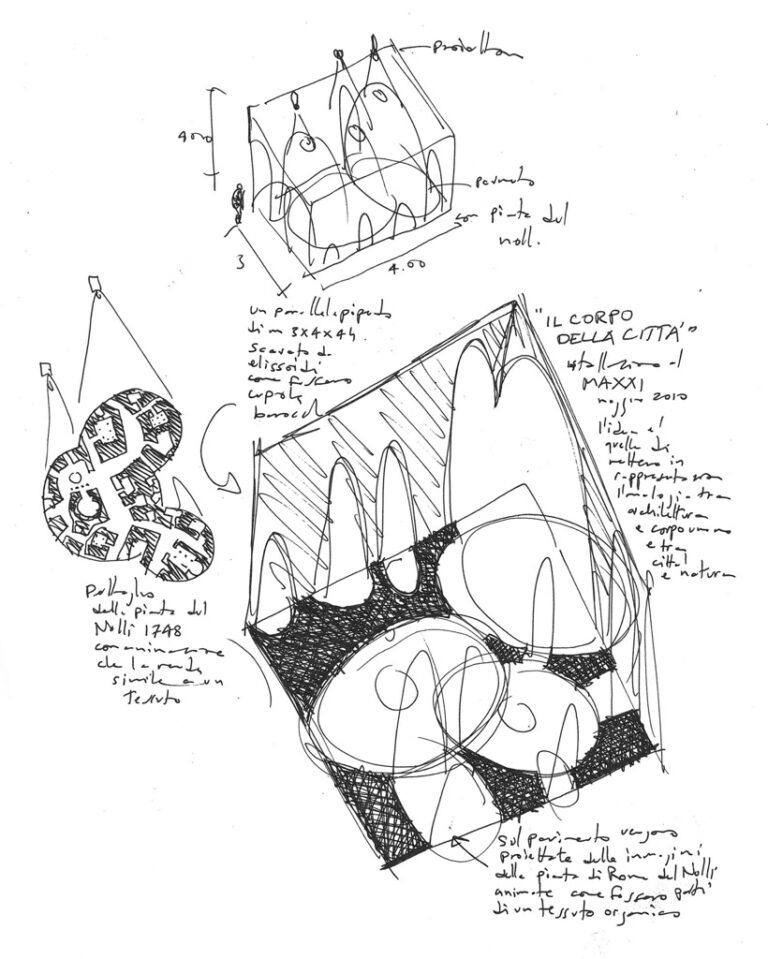 proiettori
4.00
pavimento
con pianta del
Nolli.
3
4.00
un parallelepipedo
di m 3x4x4h.
scavato da
elissoidi
come fossero
cupole
barocche
"IL CORPO
DELLA CITTÀ"
installazione al
MAXXI
maggio 2010
l'idea è
quella di
mettere in
rappresentazione
l'analogia tra
architettura
e corpo umano
e tra
città
e natura
dettaglio
della pianta del
Nolli 1748
con animazione
che la rende
simile a un
tessuto
sul pavimento vengono
proiettate delle immagini
della pianta di Roma del Nolli
animate come fossero parti
di un tessuto organico